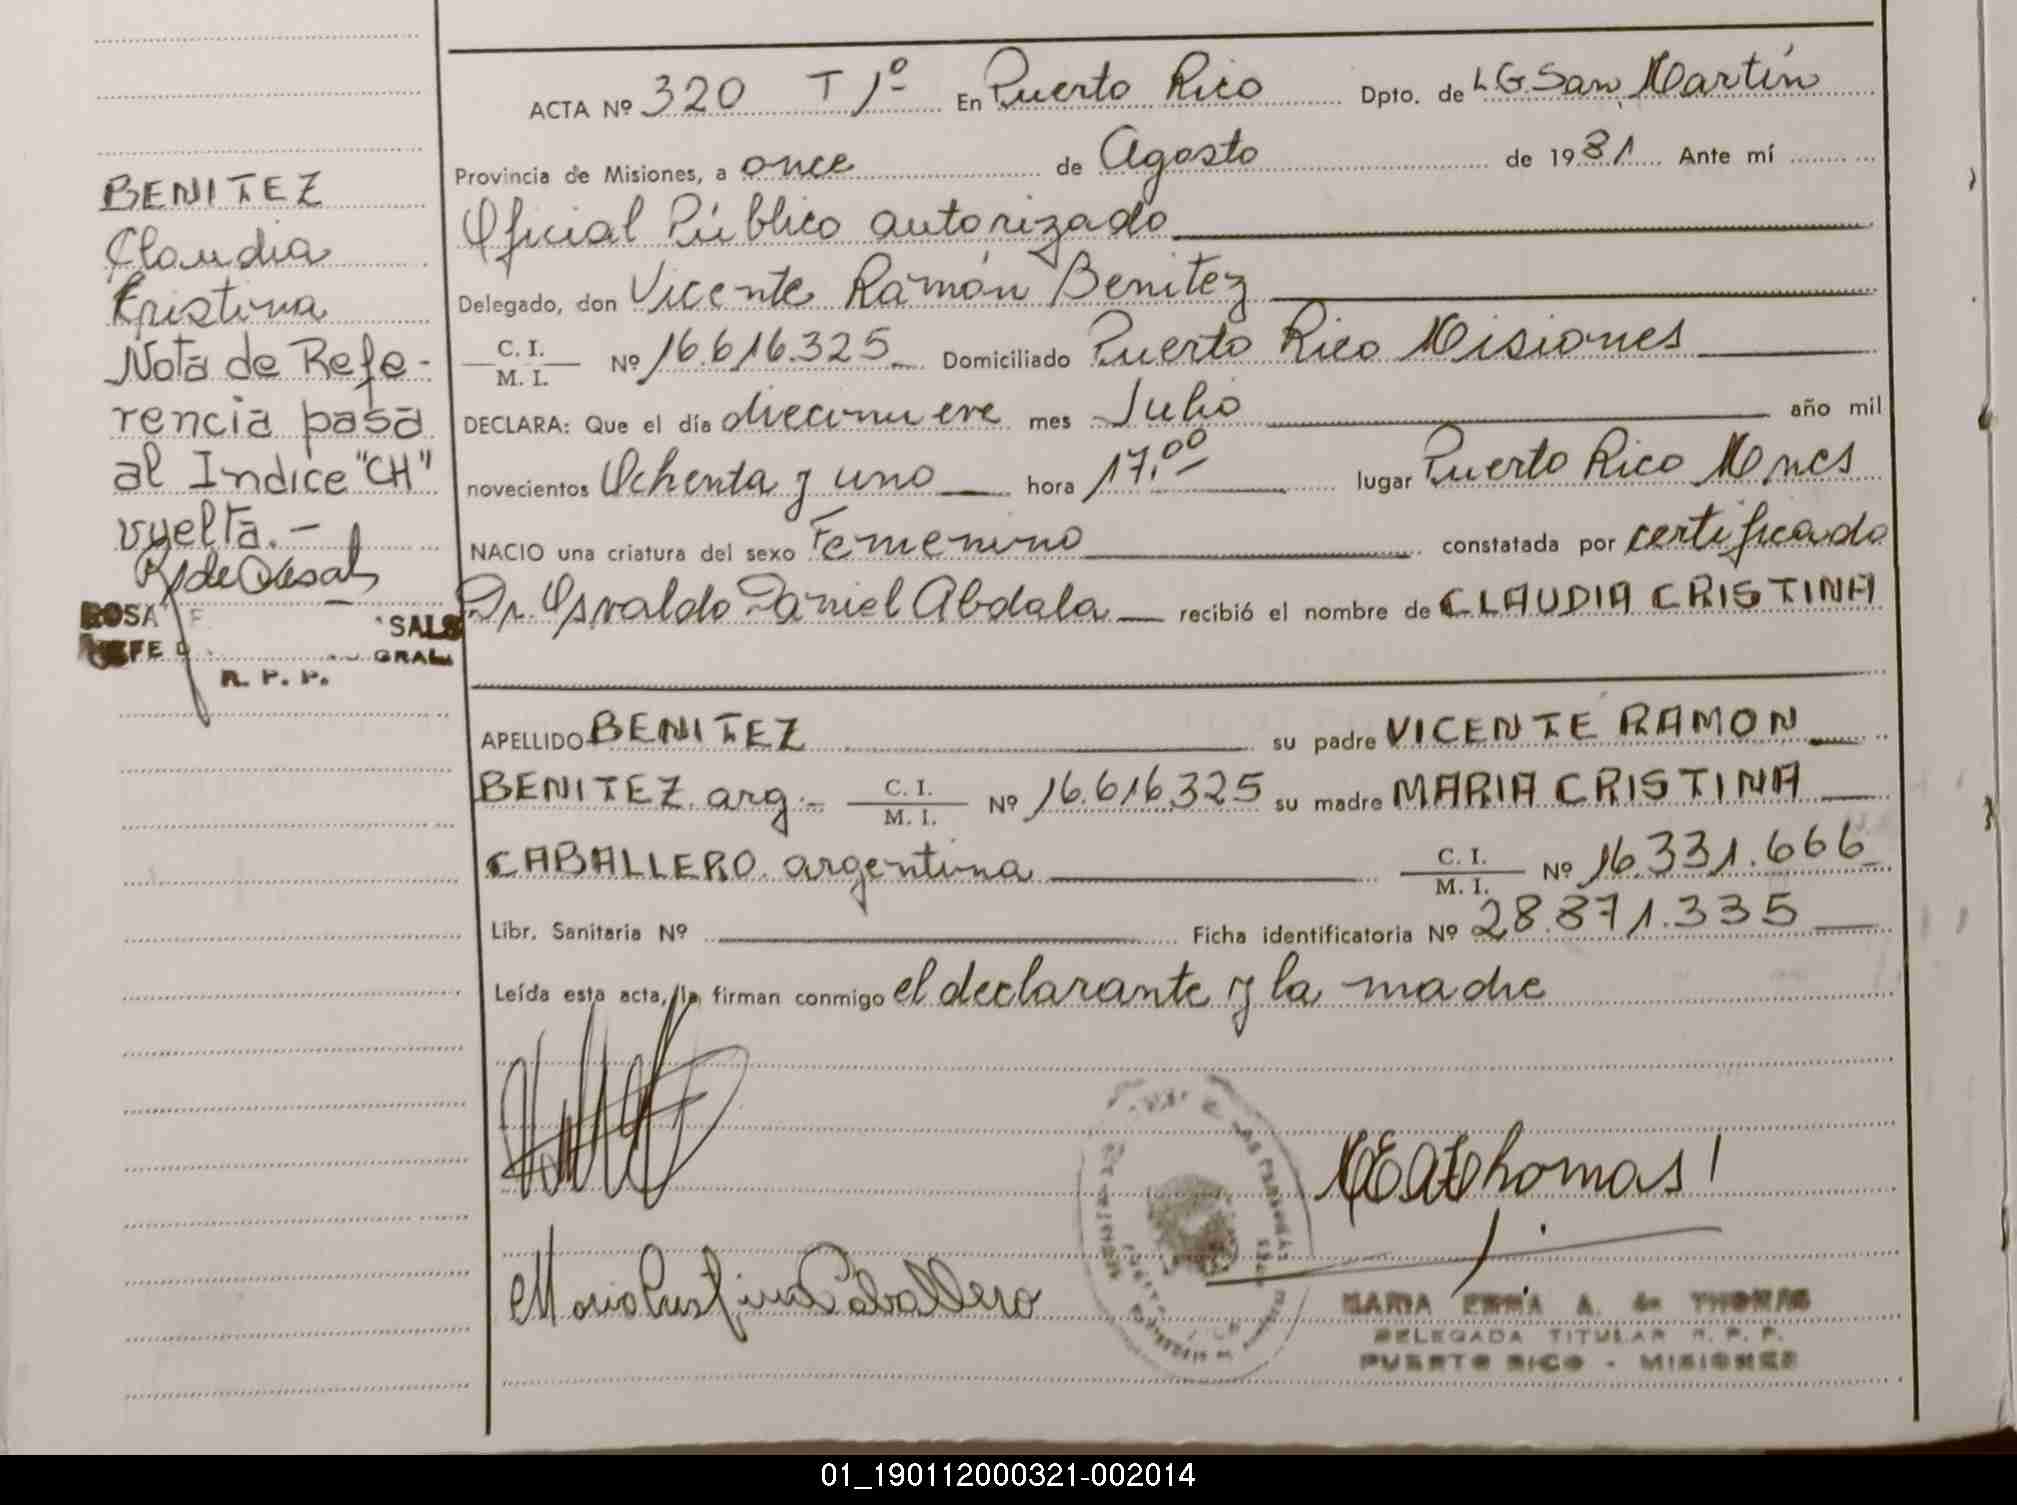 ACTA Nº 320 T 1º En Puerto Rico Dpto. de L G San Martín
Provincia de Misiones, a once de Agosto de 1981 Ante mí
Oficial Público autorizado
Delegado, don Vicente Ramón Benitez
C. I. M. I. Nº 16.616.325 Domiciliado Puerto Rico Misiones
DECLARA: Que el día diecinueve mes Julio año mil
novecientos Ochenta y uno hora 17,00 lugar Puerto Rico Mnes
NACIO una criatura del sexo Femenino constatada por certificado
Dr. Osvaldo Daniel Abdala recibió el nombre de CLAUDIA CRISTINA
APELLIDO BENITEZ su padre VICENTE RAMON
BENITEZ arg.- C. I. M. I. Nº 16.616.325 su madre MARIA CRISTINA
CABALLERO. argentina C. I. M. I. Nº 16.331.666
Libr. Sanitaria Nº Ficha identificatoria Nº 28.871.335
Leída esta acta, la firman conmigo el declarante y la madre
BENITEZ
Claudia
Kristina
Nota de Refe-
rencia pasa
al Indice "CH"
vuelta.-
ROSA SALS
JEFE D GRAL.
R. P. P.
Maria Cristina Caballero
MEAdeThomas
MARIA EMMA A. de THOMAS
DELEGADA TITULAR R. P. P.
PUERTO RICO - MISIONES
01_190112000321-002014